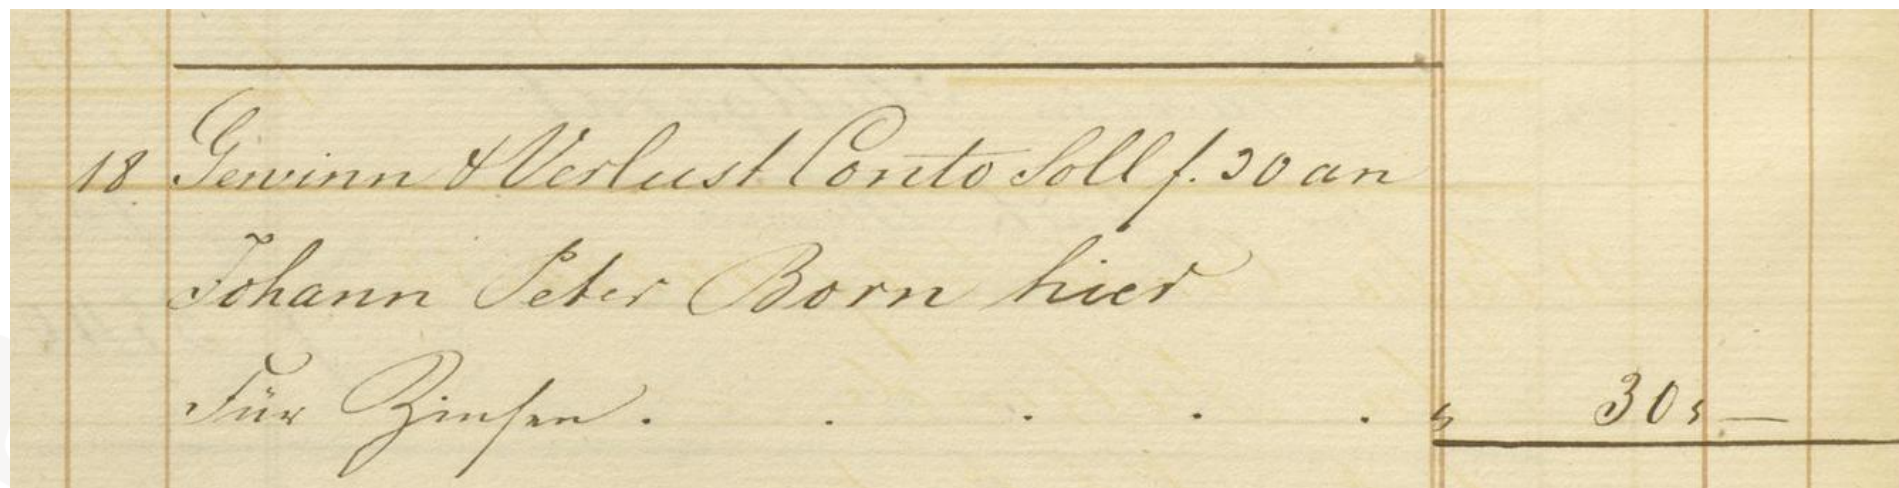 18 Gewinn & Verlust Conto Soll f. 30 an
Johann Peter Born hier
Für Zinsen . . . . . „ 30 „ —